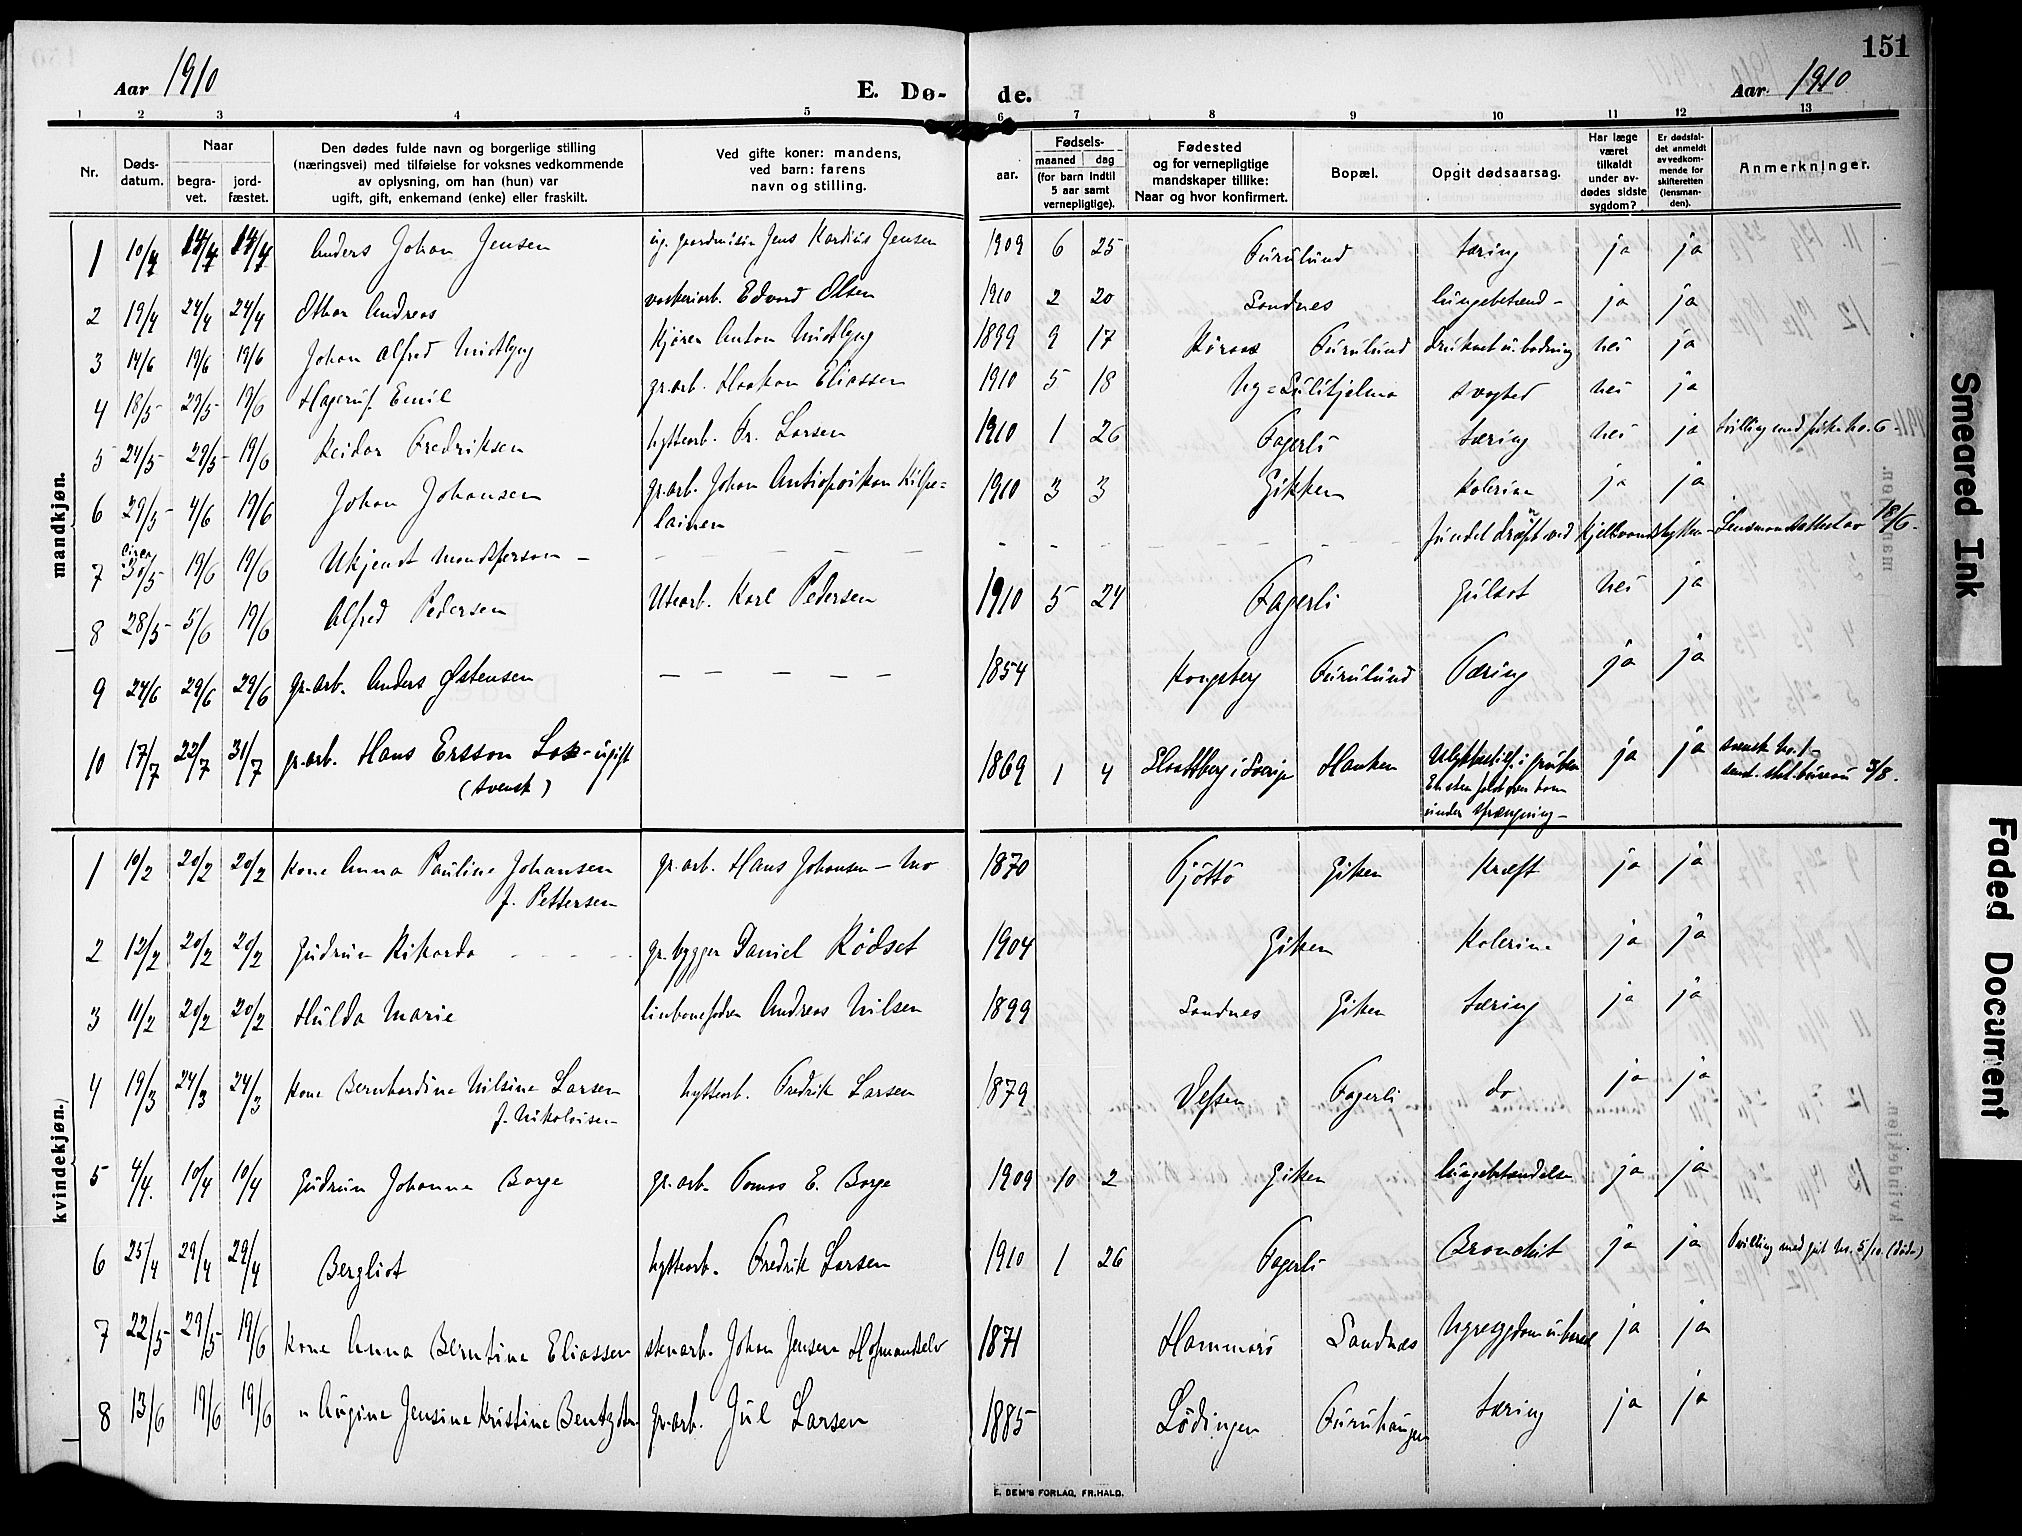 151
Aar 1910
E. Dø- de.
Aar 1910
1 2 3 4 5 6 7 8 9 10 11 12 13
Nr.
Døds-
datum.
Naar
begra-
vet.
jord-
fæstet.
Den dødes fulde navn og borgerlige stilling
(næringsvei) med tilføielse for voksnes vedkommende
av oplysning, om han (hun) var
ugift, gift, enkemand (enke) eller fraskilt.
Ved gifte koner: mandens,
ved barn: farens
navn og stilling.
aar.
Fødsels-
maaned dag
(for barn indtil
5 aar samt
vernepligtige).
Fødested
og for vernepligtige
mandskaper tillike:
Naar og hvor konfirmert.
Bopæl.
Opgit dødsaarsag.
Har læge
været
tilkaldt
under av-
dødes sidste
sygdom?
Er dødsfal-
det anmeldt
av vedkom-
mende for
skifteretten
(lensman-
den).
Anmerkninger.
mandkjøn.
1 10/4 14/4 14/4 Anders Johan Jensen ug. Jens Kordius Jensen 1909 6 25 Furulund tæring ja ja
2 19/4 24/4 24/4 Othar Andreas vaskeriarb. Edvard Olsen 1910 2 20 Sandnes lungebetænd- ja ja
3 14/6 19/6 19/6 Johan Alfred Midtlyng Kjører Anton Midtlyng 1899 9 17 Röraas Furulund druknet u. badning nei ja
4 18/5 29/5 19/6 Hageruf. Emil gr.arb. Haakon Eliassen 1910 5 18 Ny-Sulitjelma svaghed nei ja
5 24/5 29/5 19/6 Reidar Fredriksen hyttearb. Fr. Larsen 1910 1 26 Fagerli tæring nei ja tvilling med pike no. 6-
6 29/5 4/6 19/6 Johan Johansen gr.arb. Johan Kilpe=
lainen 1910 3 3 Gikken Kolerine ja ja
7 circa 30/5 19/6 19/6 Ukjendt mandsperson - - - - - - fundet dræpt ved Kjelvandshytten - Lensmandsattest av 18/6.
8 28/5 5/6 19/6 Alfred Pedersen Utearb. Karl Pedersen 1910 5 24 Fagerli Gulsot nei ja
9 24/6 29/6 29/6 gr.arb. Anders Østensen - - - - - 1854 Kongsberg Furulund Tæring ja ja
10 17/7 22/7 31/7 gr.arb. Hans Ersson Lok - ugift
(svensk) 1869 1 4 i Sverige Hanken Ulykkestilf. i gruben
En sten faldt over ham
under sprængning - ja ja svensk no. 1-
send. stat. bureau 3/8.
kvindekjøn.
1 10/2 20/2 20/2 Kone Anna Pauline Johansen
f. Pettersen gr.arb. Hans Johansen - Mo 1870 Tjöttö Giken Kræft ja ja
2 12/2 20/2 20/2 Gudrun Rikarda - - - - gr.bygger Daniel Rödset 1904 Giken Kolerine ja ja
3 11/2 20/2 20/2 Hulda Marie Andreas Nilsen 1899 Sandnes Giken tæring ja ja
4 19/3 24/3 24/3 Kone Bernhardine Nilsine Larsen
f. Nikolaisen hyttearb. Fredrik Larsen 1879 Vefsen Fagerli do ja ja
5 4/4. 10/4 10/4 Gudrun Johanna Borge gr.arb. Tomas E. Borge 1909 10 2 Giken lungebetændelse ja ja
6 25/4 29/4 29/4 Bergliot hyttearb. Fredrik Larsen 1910 1 26 Fagerli Bronchit ja ja Tvilling med gut no. 5/10. (döde)
7 22/5 29/5 19/6 Kone Anna Berntine Eliassen stenarb. Johan Jensen 1871 Hammarö Sandnes Nyresygdom u. barsel ja ja
8 13/6 19/6 19/6 " Augine Jensine Kristine Bentzen gr.arb. Jul Larsen 1885 Lödingen Furuhaugen tæring ja ja
E. DEM'S FORLAG, FR. HALD.
Smeared Ink
Faded Document